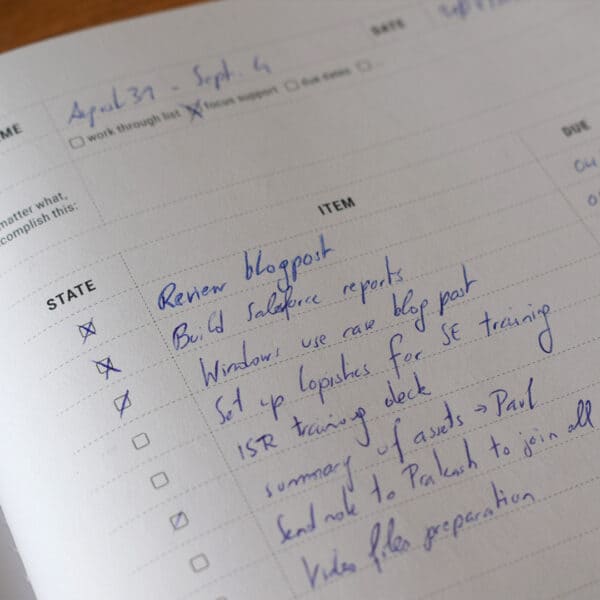 DATE
August 31 - Sept. 4
work through list focus support due dates ...
matter what,
complish this:
STATE ITEM DUE
Review blogpost 04
Build Salesforce reports 0
Windows use case blog post
Set up logistics for SE training
ISR training deck
summary of assets → Paul
Send note to Prakash to join all
Video files preparation